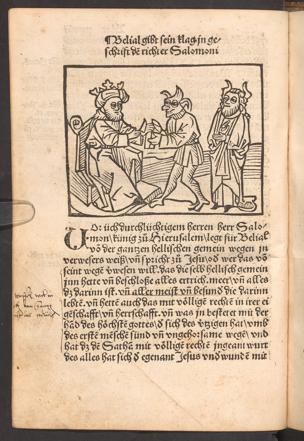 Belial gibt sein klag in ge-
schrift dē richter Salomoni
Vor üch durchlüchtigem herren herr Salo-
mon künig zů Hierusalem legt für Belial
vō der ganzen hellischen gemein wegen jn
verwesers weiß vñ spricht zů Jesu od wer das vō
seint wegē vwesen will. das die selb hellisch gemein
inn hette vñ beschloße alles ertrich. meer vñ alles
dz darinn ist. vñ aller meist vñ besund die darinn
lebtē. vñ hette auch das mit völligē rechtē in irer ei
geschafft vñ herrschafft. vñ was jn besterē mit der
hād des höchstē gottes d sich des vtzigen hat vmb
des erstē mēsche sünd vñ vngehorsame wegē vnd
hat dz dē Sathā mit völligē rechtē jngeantwurt
des alles hat sich d egenant Jesus vnd wunden mit